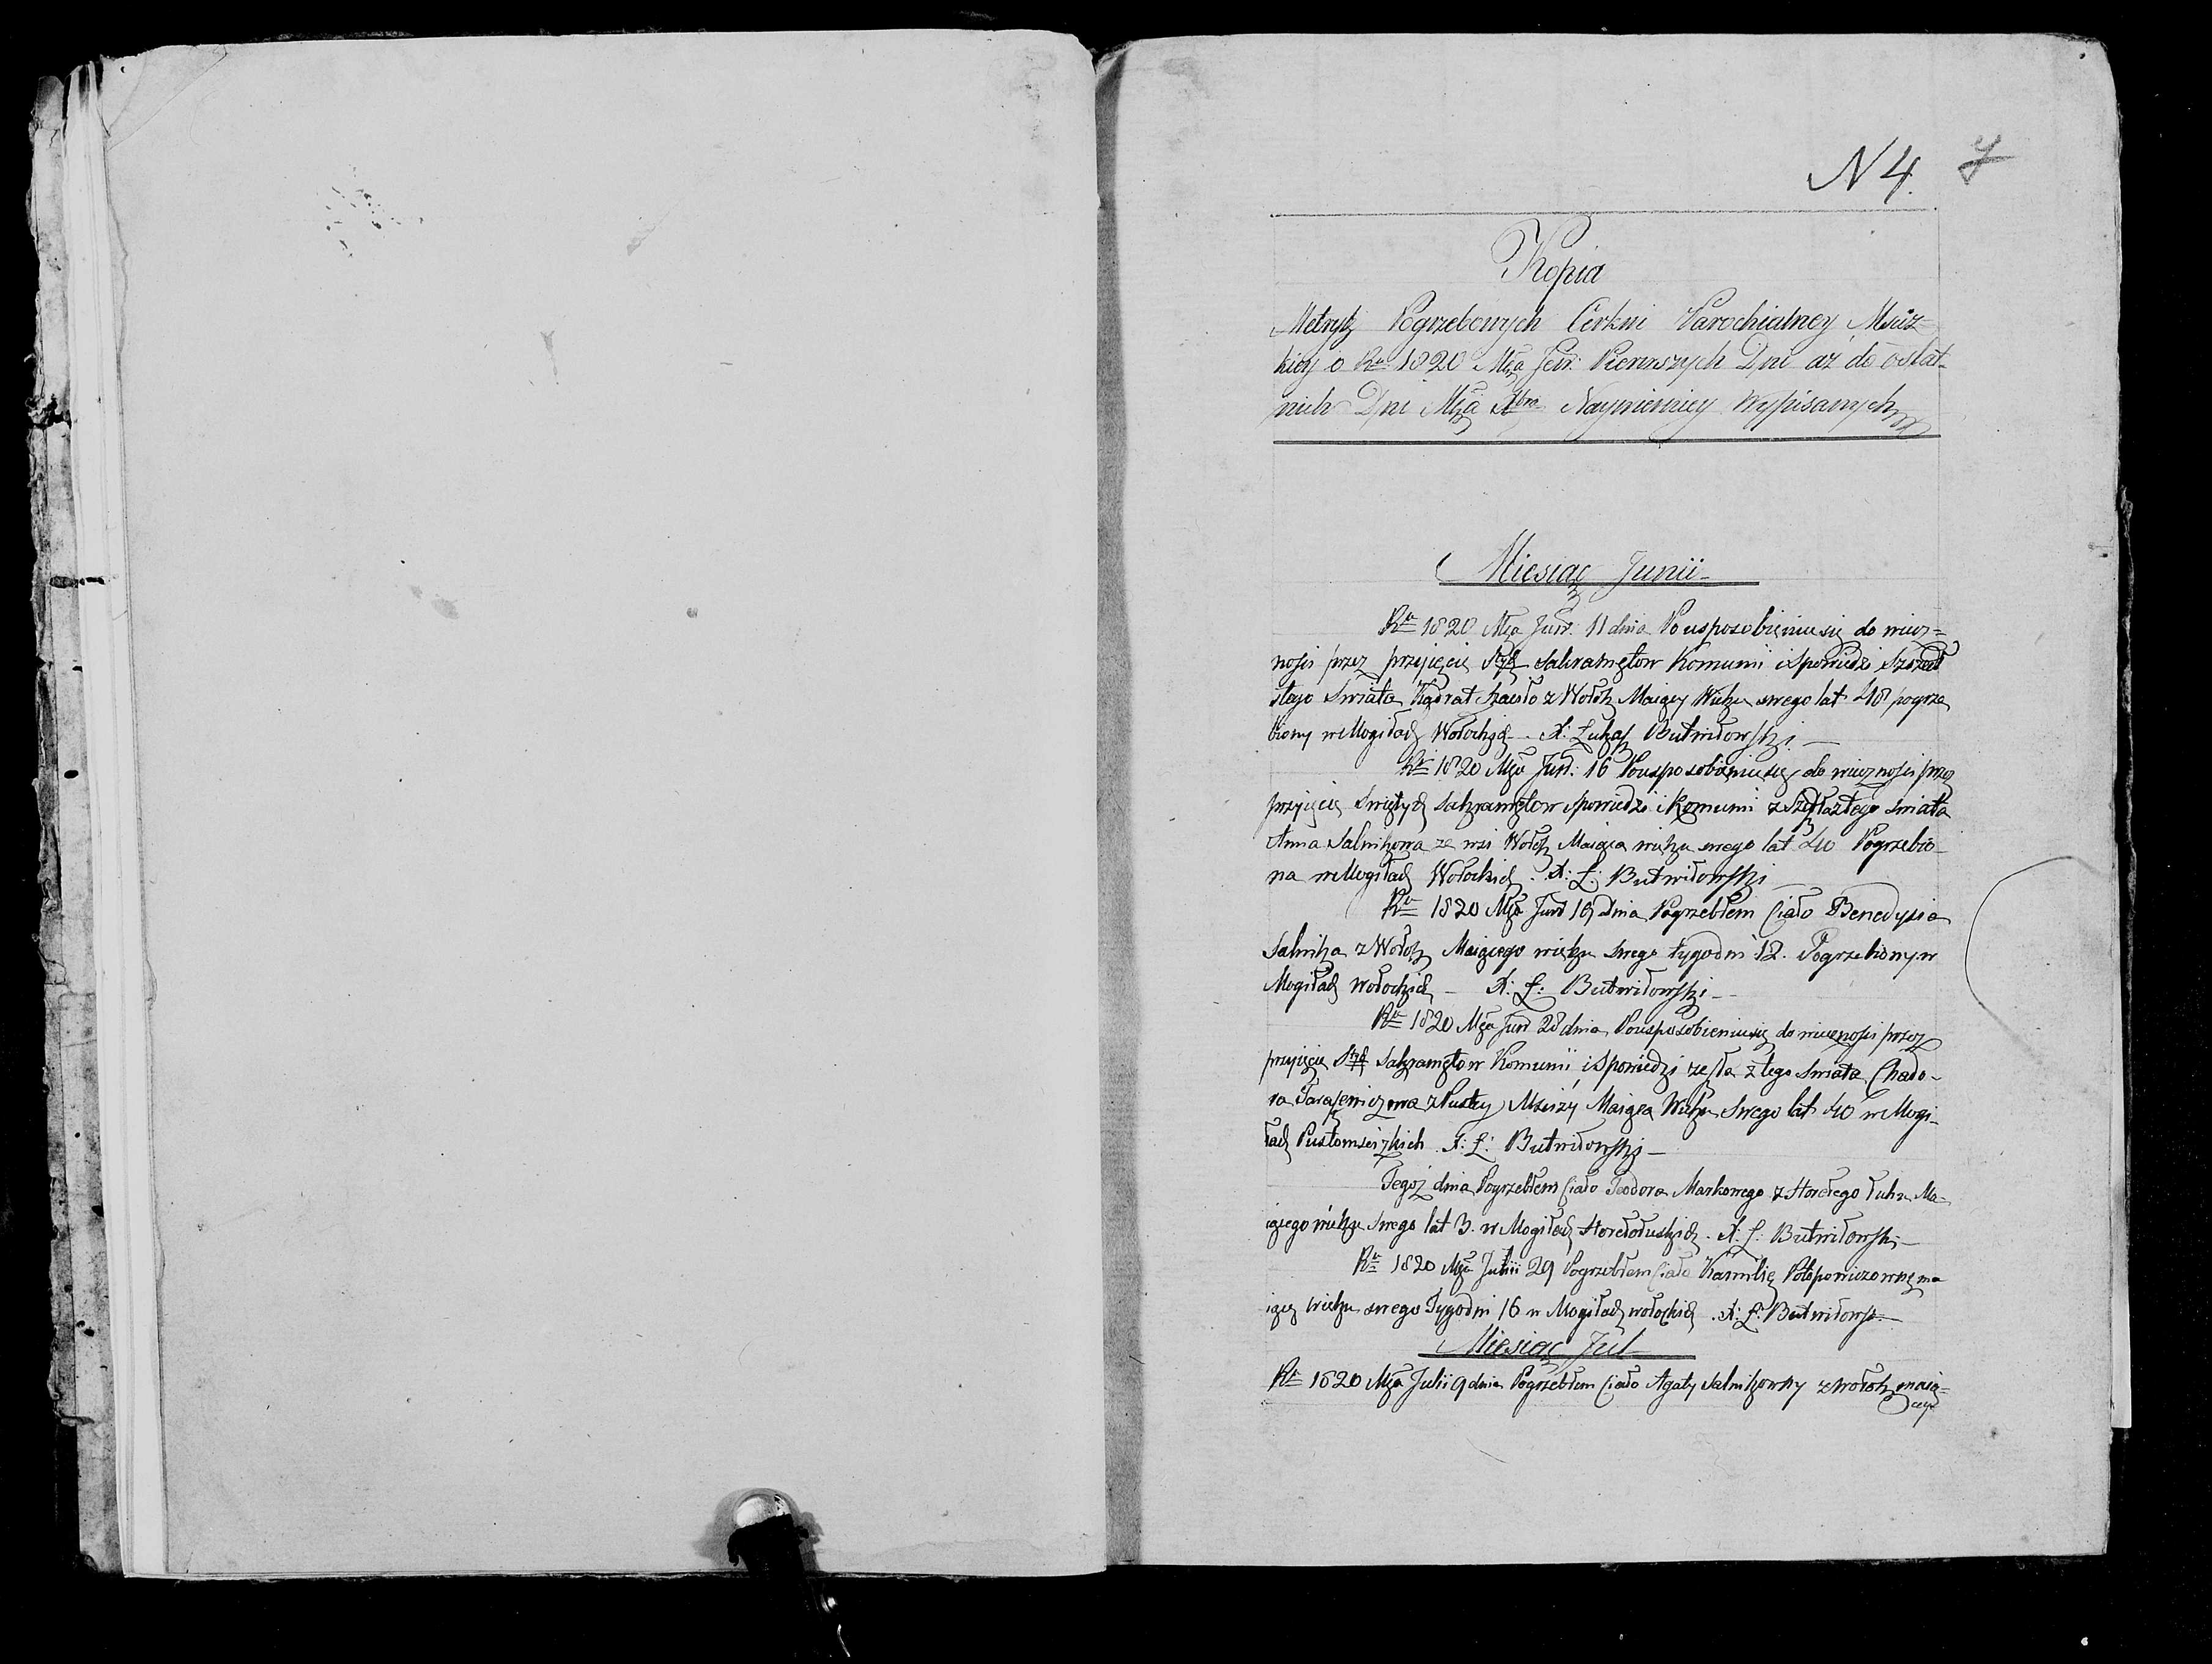 N 4. 7
Kopia
Metryk Pogrzebowych Cerkwi Parochialney Mściz-
kiey o Ru 1820 Mca Jun: Pierwszych Dni aż do ostat-
nich Dni Mca Xbra Naywierniey Wypisanych
Miesiąc Junii
Ru 1820 Mca Jun: 11 dnia Po usposobieniu się do wiecz-
nosci przez przyjęcie Stych Sakramętow Komunii i Spowiedzi Szzedł
stego Swiata z Wołok Maiący Wieku swego lat 48 pogrze
biony w Mogiłach Wołockich X: Łukasz Butwiłowski
Ru 1820 Mca Jun: 16 Po usposobieniu się do wiecznosci przez
przyjęcie Swiętych Sakramętow Spowiedzi i Komunii z tego swiata
Anna Salnikowa ze wsi Wołok Maiąca wieku swego lat 40 Pogrzebio-
na w Mogiłach Wołockich X: Ł: Butwiłowski
Ru 1820 Mca Jun 19 Dnia Pogrzebłem Ciało Benedysia
Salnika z Wołok Maiącego wieku Swego tygodni 12. Pogrzebiony w
Mogiłach wołockich – X: Ł: Butwiłowski
Ru 1820 Mca Jun 28 dnia Po usposobieniu się do wiecznosci przez
przyjęcie Stych Sakramętow Komunii i Spowiedzi zeszła z tego Swiata Chado-
ra Tarasewiczowa z Pustey Mścizy Maiąca Wieku Swego lat 40 w Mogi-
łach Pustomścizkich X: Ł: Butwiłowski –
Tegoż dnia Pogrzebłem Ciało Teodora Markowego z Horełego Ługu Ma-
iącego wieku Swego lat 3. w Mogiłach Horełołuskich. X: Ł: Butwiłowski
Ru 1820 Mca Junii 29 Pogrzebłem Ciało Kamilię Potopowiczownę ma
iącey wieku swego Tygodni 16 w Mogiłach wołockich X: Ł: Butwiłowski
Miesiąc Jul
Ru 1820 Mca Julii 9 dnia Pogrzebłem Ciało Agaty Salnikowny z Wołok maią-
cey